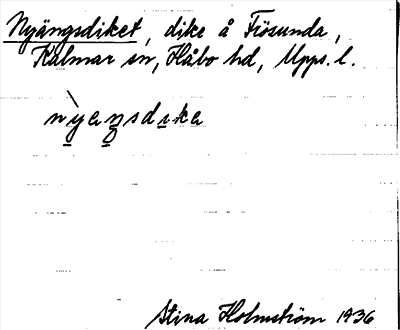 Nyängsdiket, dike å Fiösunda,
Kalmar sn, Håbo hd, Upps. l.
nyaŋsdıka
Stina Holmström 1936